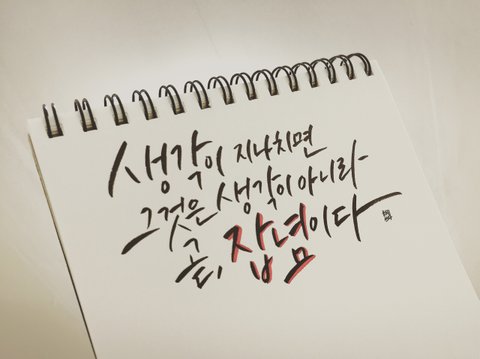 생각이 지나치면
그것은 생각이 아니라
곧, 잡념이다